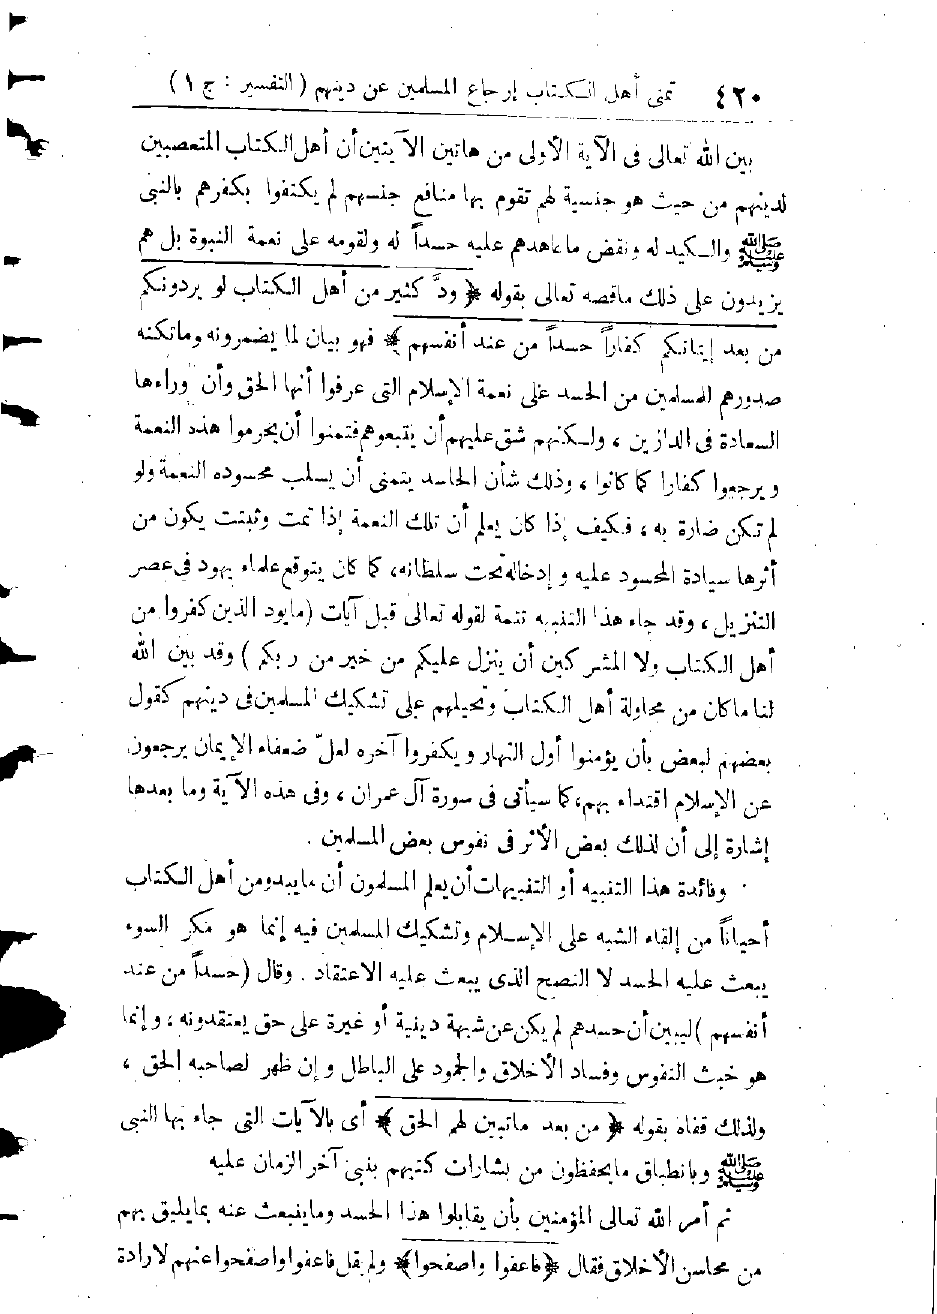 ٤٢٠ تمنى أهل الكتاب إرجاع المسلمين عن دينهم ( التفسير : ج ١ )
بين الله تعالى فى الآية الأولى من هاتين الآيتين أن أهل الكتاب المتعصبين
لدينهم من حيث هو جنسية لهم تقوم بها منافع جنسهم لم يكتفوا بكفرهم بالنبى
ﷺ والكيد له ونقض ما عاهدهم عليه حسداً له ولقومه على نعمة النبوة بل هم
يزيدون على ذلك ما قصه تعالى بقوله ﴿ ودَّ كثير من أهل الكتاب لو يردونكم
من بعد إيمانكم كفاراً حسداً من عند أنفسهم ﴾ فهو بيان لما يضمرونه وما تكنه
صدورهم للمسلمين من الحسد على نعمة الإسلام التى عرفوا أنها الحق وأن وراءها
السعادة فى الدارين ، ولكنهم شق عليهم أن يتبعوهم فتمنوا أن يحرموا هذه النعمة
ويرجعوا كفارا كما كانوا ، وذلك شأن الحاسد يتمنى أن يسلب محسوده النعمة ولو
لم تكن ضارة به ، فكيف إذا كان يعلم أن تلك النعمة إذا تمت وثبتت يكون من
أثرها سيادة المحسود عليه وإدخاله تحت سلطانه، كما كان يتوقع علماء يهود فى عصر
التنزيل ، وقد جاء هذا التنبيه تتمة لقوله تعالى قبل آيات (ما يود الذين كفروا من
أهل الكتاب ولا المشركين أن ينزل عليكم من خير من ربكم ) وقد بين الله
لنا ما كان من محاولة أهل الكتاب وتحيلهم على تشكيك المسلمين فى دينهم كقول
بعضهم لبعض بأن يؤمنوا أول النهار ويكفروا آخره لعلّ ضعفاء الإيمان يرجعون
عن الإسلام اقتداء بهم، كما سيأتى فى سورة آل عمران ، وفى هذه الآية وما بعدها
إشارة إلى أن لذلك بعض الأثر فى نفوس بعض المسلمين .
وفائدة هذا التنبيه أو التنبيهات أن يعلم المسلمون أن ما يبدو من أهل الكتاب
أحياناً من إلقاء الشبه على الإسلام وتشكيك المسلمين فيه إنما هو مكر السوء
يبعث عليه الحسد لا النصح الذى يبعث عليه الاعتقاد . وقال (حسداً من عند
أنفسهم ) ليبين أن حسدهم لم يكن عن شبهة دينية أو غيرة على حق يعتقدونه ، وإنما
هو خبث النفوس وفساد الأخلاق والجمود على الباطل وإن ظهر لصاحبه الحق ،
ولذلك قفاه بقوله ﴿ من بعد ما تبين لهم الحق ﴾ أى بالآيات التى جاء بها النبى
ﷺ وبانطباق ما يحفظون من بشارات كتبهم بنبى آخر الزمان عليه
ثم أمر الله تعالى المؤمنين بأن يقابلوا هذا الحسد وما ينبعث عنه بما يليق بهم
من محاسن الأخلاق فقال ﴿فاعفوا واصفحوا﴾ ولم يقل فاعفوا واصفحوا عنهم لارادة